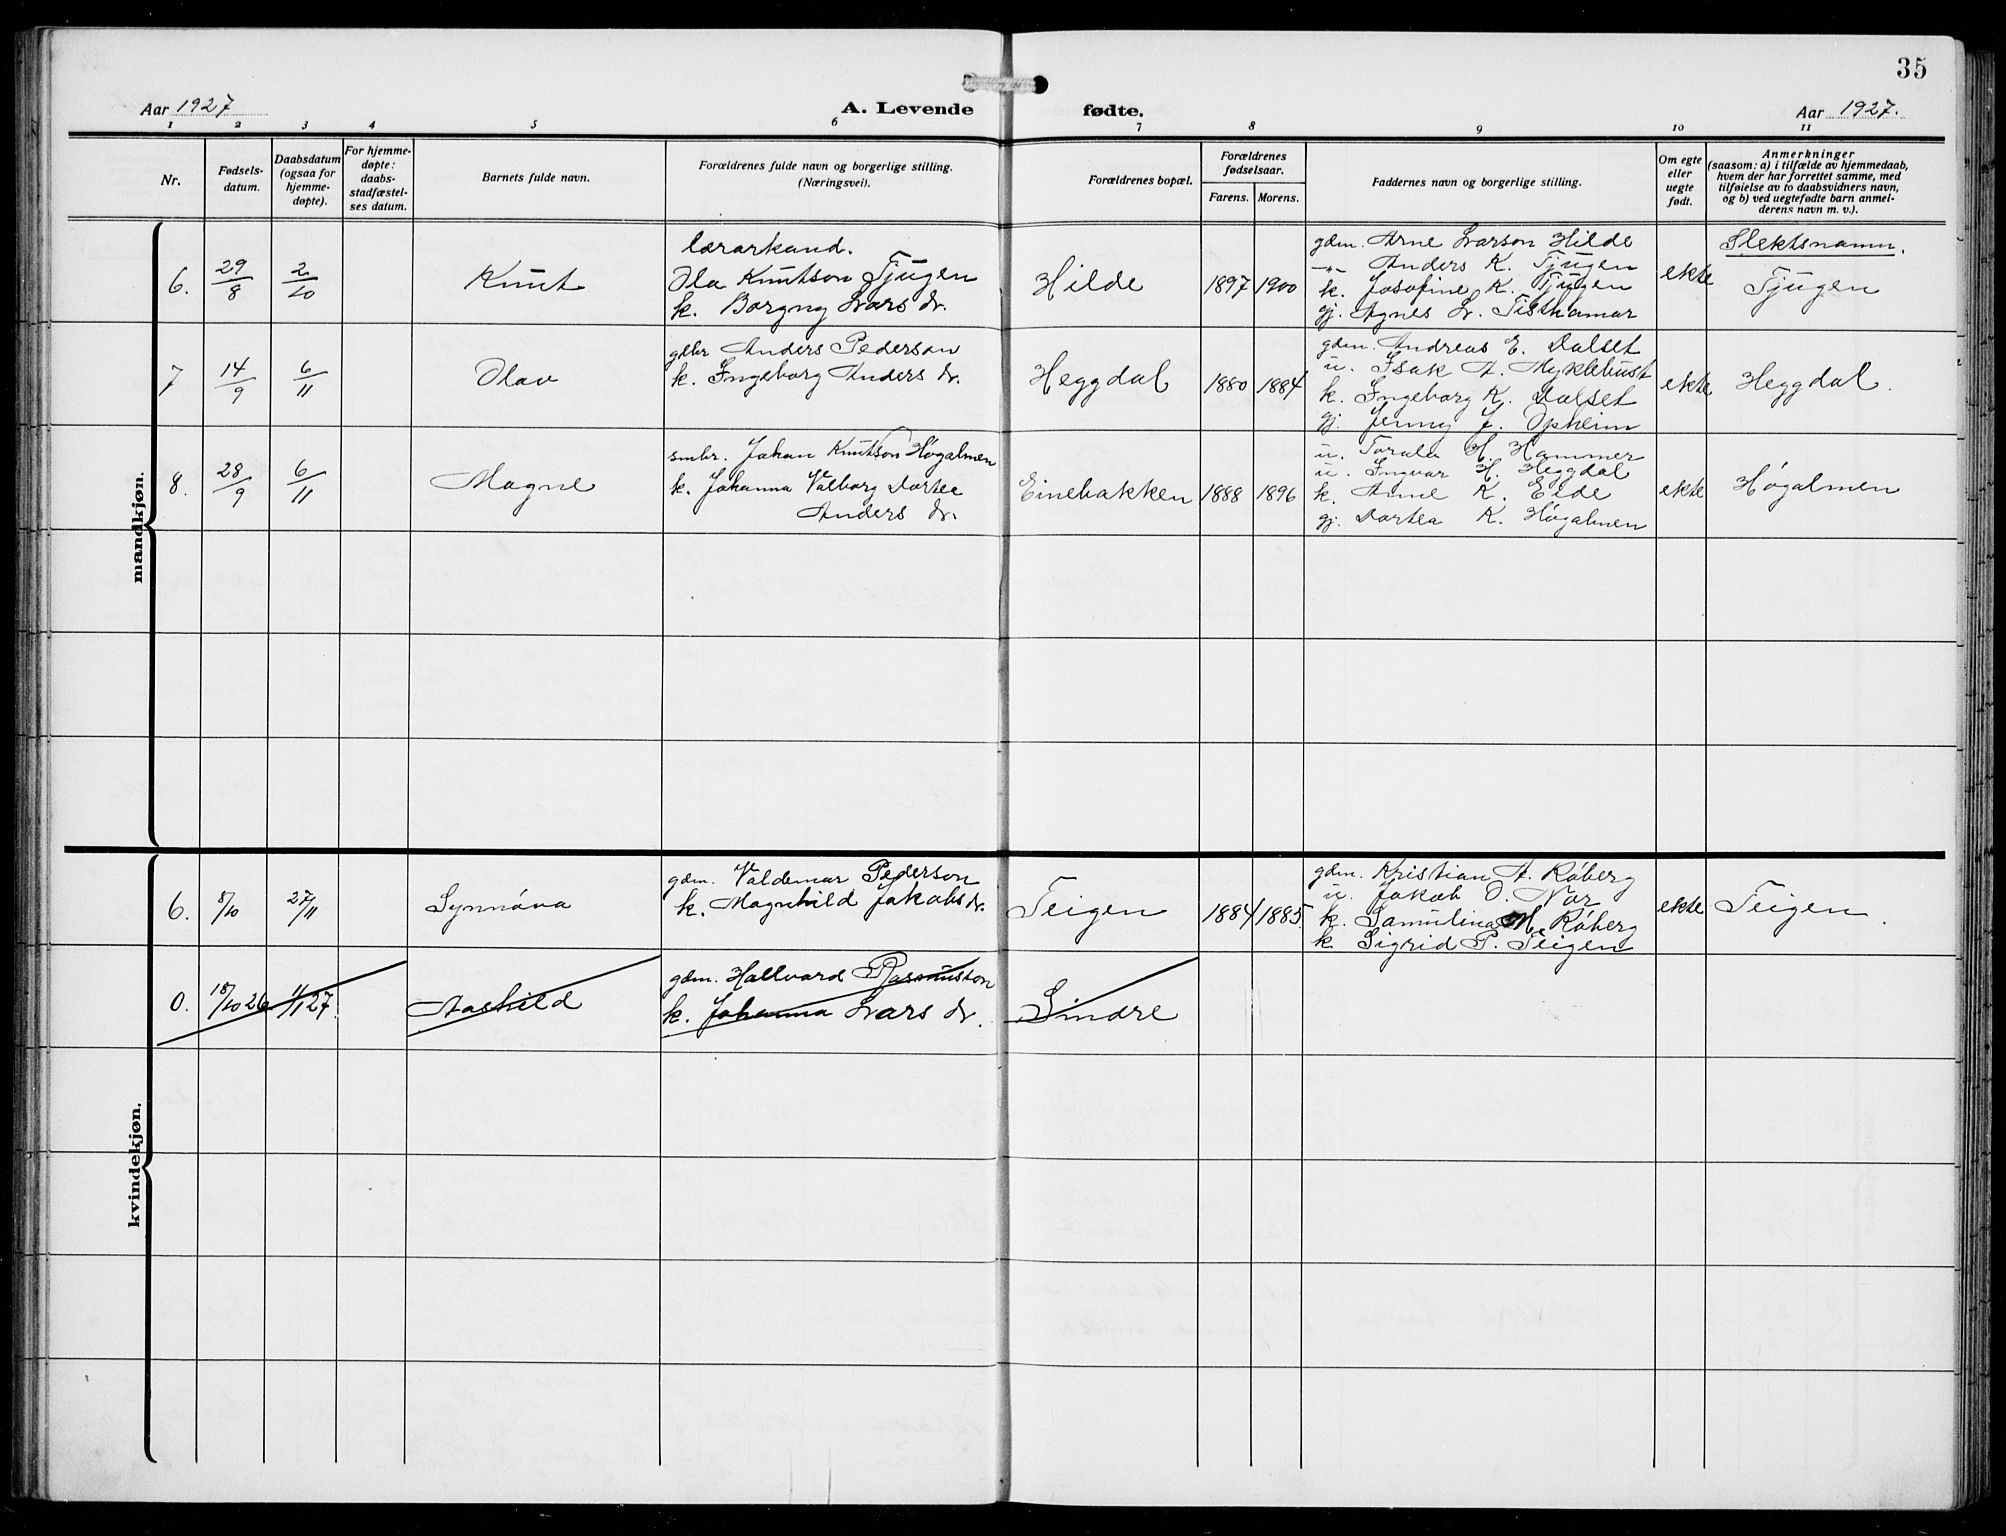 35
Aar 1927
A. Levende
fødte.
Aar 1927.
1 2 3 4 5 6 7 8 9 10 11
Nr.
Fødsels-
datum.
Daabsdatum
(ogsaa for
hjemme-
døpte).
For hjemme-
døpte:
daabs-
stadfæstel-
ses datum.
Barnets fulde navn.
Forældrenes fulde navn og borgerlige stilling.
(Næringsvei).
Forældrenes bopæl.
Forældrenes
fødselsaar.
Farens. Morens.
Faddernes navn og borgerlige stilling.
Om egte
eller
uegte
født.
Anmerkninger
(saasom: a) i tilfælde av hjemmedaab,
hvem der har forrettet samme, med
tilføielse av to daabsvidners navn,
og b) ved uegtefødte barn anmel-
derens navn m. v.).
mandkjøn.
6. 29/8 2/10
Knut
lærarkand.
Ola Knutson Tjugen
k. Borgny Lars dr.
Hilde
1897 1900
gdm. Arne Larson Hilde
-"- Anders K. Tjugen
k. Josefine K. Tjugen
gj. Agnes L. Tisthamar
ekte
Slektsnamn.
Tjugen
7 14/9 6/11
Olav
gbr Anders Pederson
k. Ingeborg Anders dr.
Heggdal
1880 1884
gdm. Andreas E. Dalset
u. Isak A. Myklebust
k. Ingeborg K. Dalset
gj. Jenny J. Opheim
ekte
Heggdal.
8. 28/9 6/11
Magne
smbr. Johan Knutson Høgalmen
k. Johanna Valborg Dortea
Anders dr.
Einebakken
1888 1896
u. Toralv H. Hammer
u. Ingvar H. Heggdal
k. Anne K. Eide
gj. Dortea K. Høgalmen
ekte
Høgalmen
kvindekjøn.
6. 8/10 27/11
Synnøva
gdm. Valdemar Pederson
k. Magnhild Jakobs dr.
Teigen
1884 1885.
gdm. Kristian A. Røberg
u. Jakob O. Nor
k. Samulina M. Røberg
k. Sigrid P. Teigen
ekte
Teigen.
0. 18/10 26 1/1 27.
Aashild
gdm. Hallvard Rasmusson
k. Johanna Lars dr.
Sindre